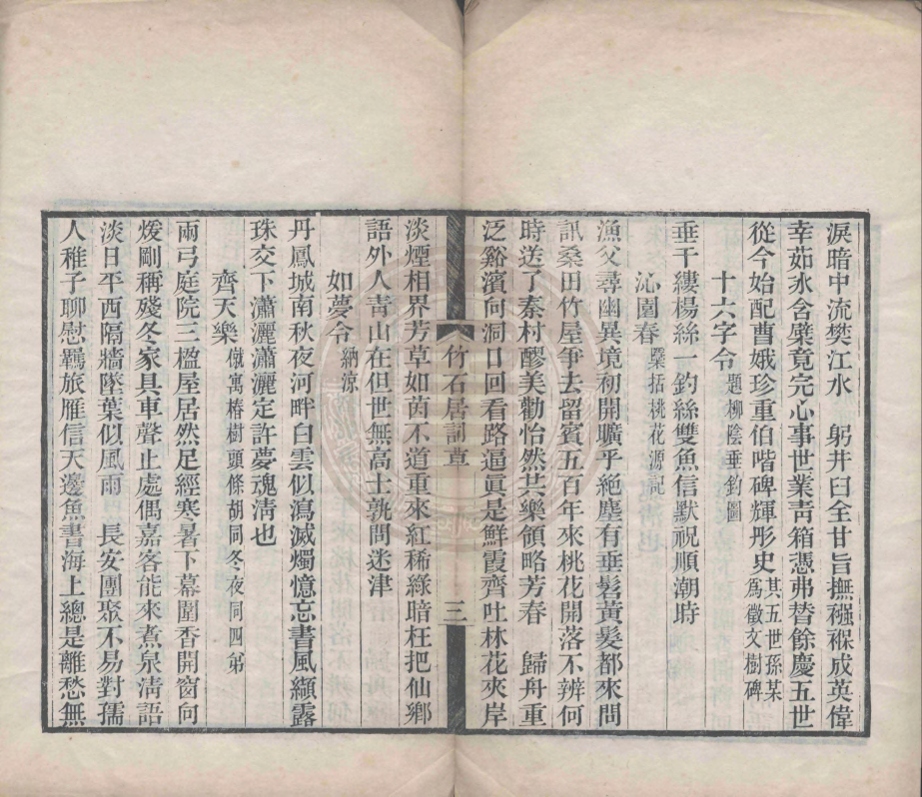 淚暗中流樊江水　躬井臼全甘旨撫襁褓成英偉
幸茹冰含櫱竟完心事世業靑箱憑弗替餘慶五世
從今始配曹娥珍重伯喈碑輝彤史其五世孫某爲徵文樹碑
十六字令題柳陰垂釣圖
垂千縷楊絲一釣絲雙魚信默祝順潮時
沁園春檃括桃花源記
漁父尋幽異境初開曠乎絶塵有垂髫黃髮都來問
訊桑田竹屋爭去留賓五百年來桃花開落不辨何
時送了秦村醪美勸怡然共樂領略芳春　歸舟重
泛谿濱向洞口回看路逼眞是鮮霞齊吐林花夾岸
竹石居詞草
三
淡煙相界芳草如茵不道重來紅稀綠暗枉把仙鄉
語外人靑山在但世無高士孰問迷津
如夢令納涼
丹鳳城南秋夜河畔白雲似瀉滅燭憶忘書風纈露
珠交下瀟灑瀟灑定許夢魂淸也
齊天樂僦寓椿樹頭條胡同冬夜同四弟
兩弓庭院三楹屋居然足經寒暑下幕圍香開窗向
煖剛稱殘冬家具車聲止處偶嘉客能來煮泉淸語
淡日平西隔牆墜葉似風雨　長安團聚不易對孺
人稚子聊慰羈旅雁信天邊魚書海上總是離愁無